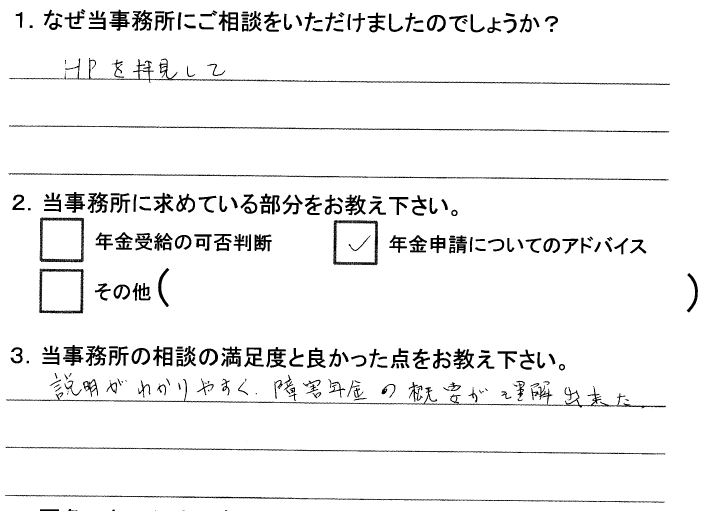 1. なぜ当事務所にご相談をいただけましたのでしょうか？
HPを拝見して
2. 当事務所に求めている部分をお教え下さい。
年金受給の可否判断 ✓ 年金申請についてのアドバイス
その他（ ）
3. 当事務所の相談の満足度と良かった点をお教え下さい。
説明がわかりやすく、障害年金の概要が理解出来た。